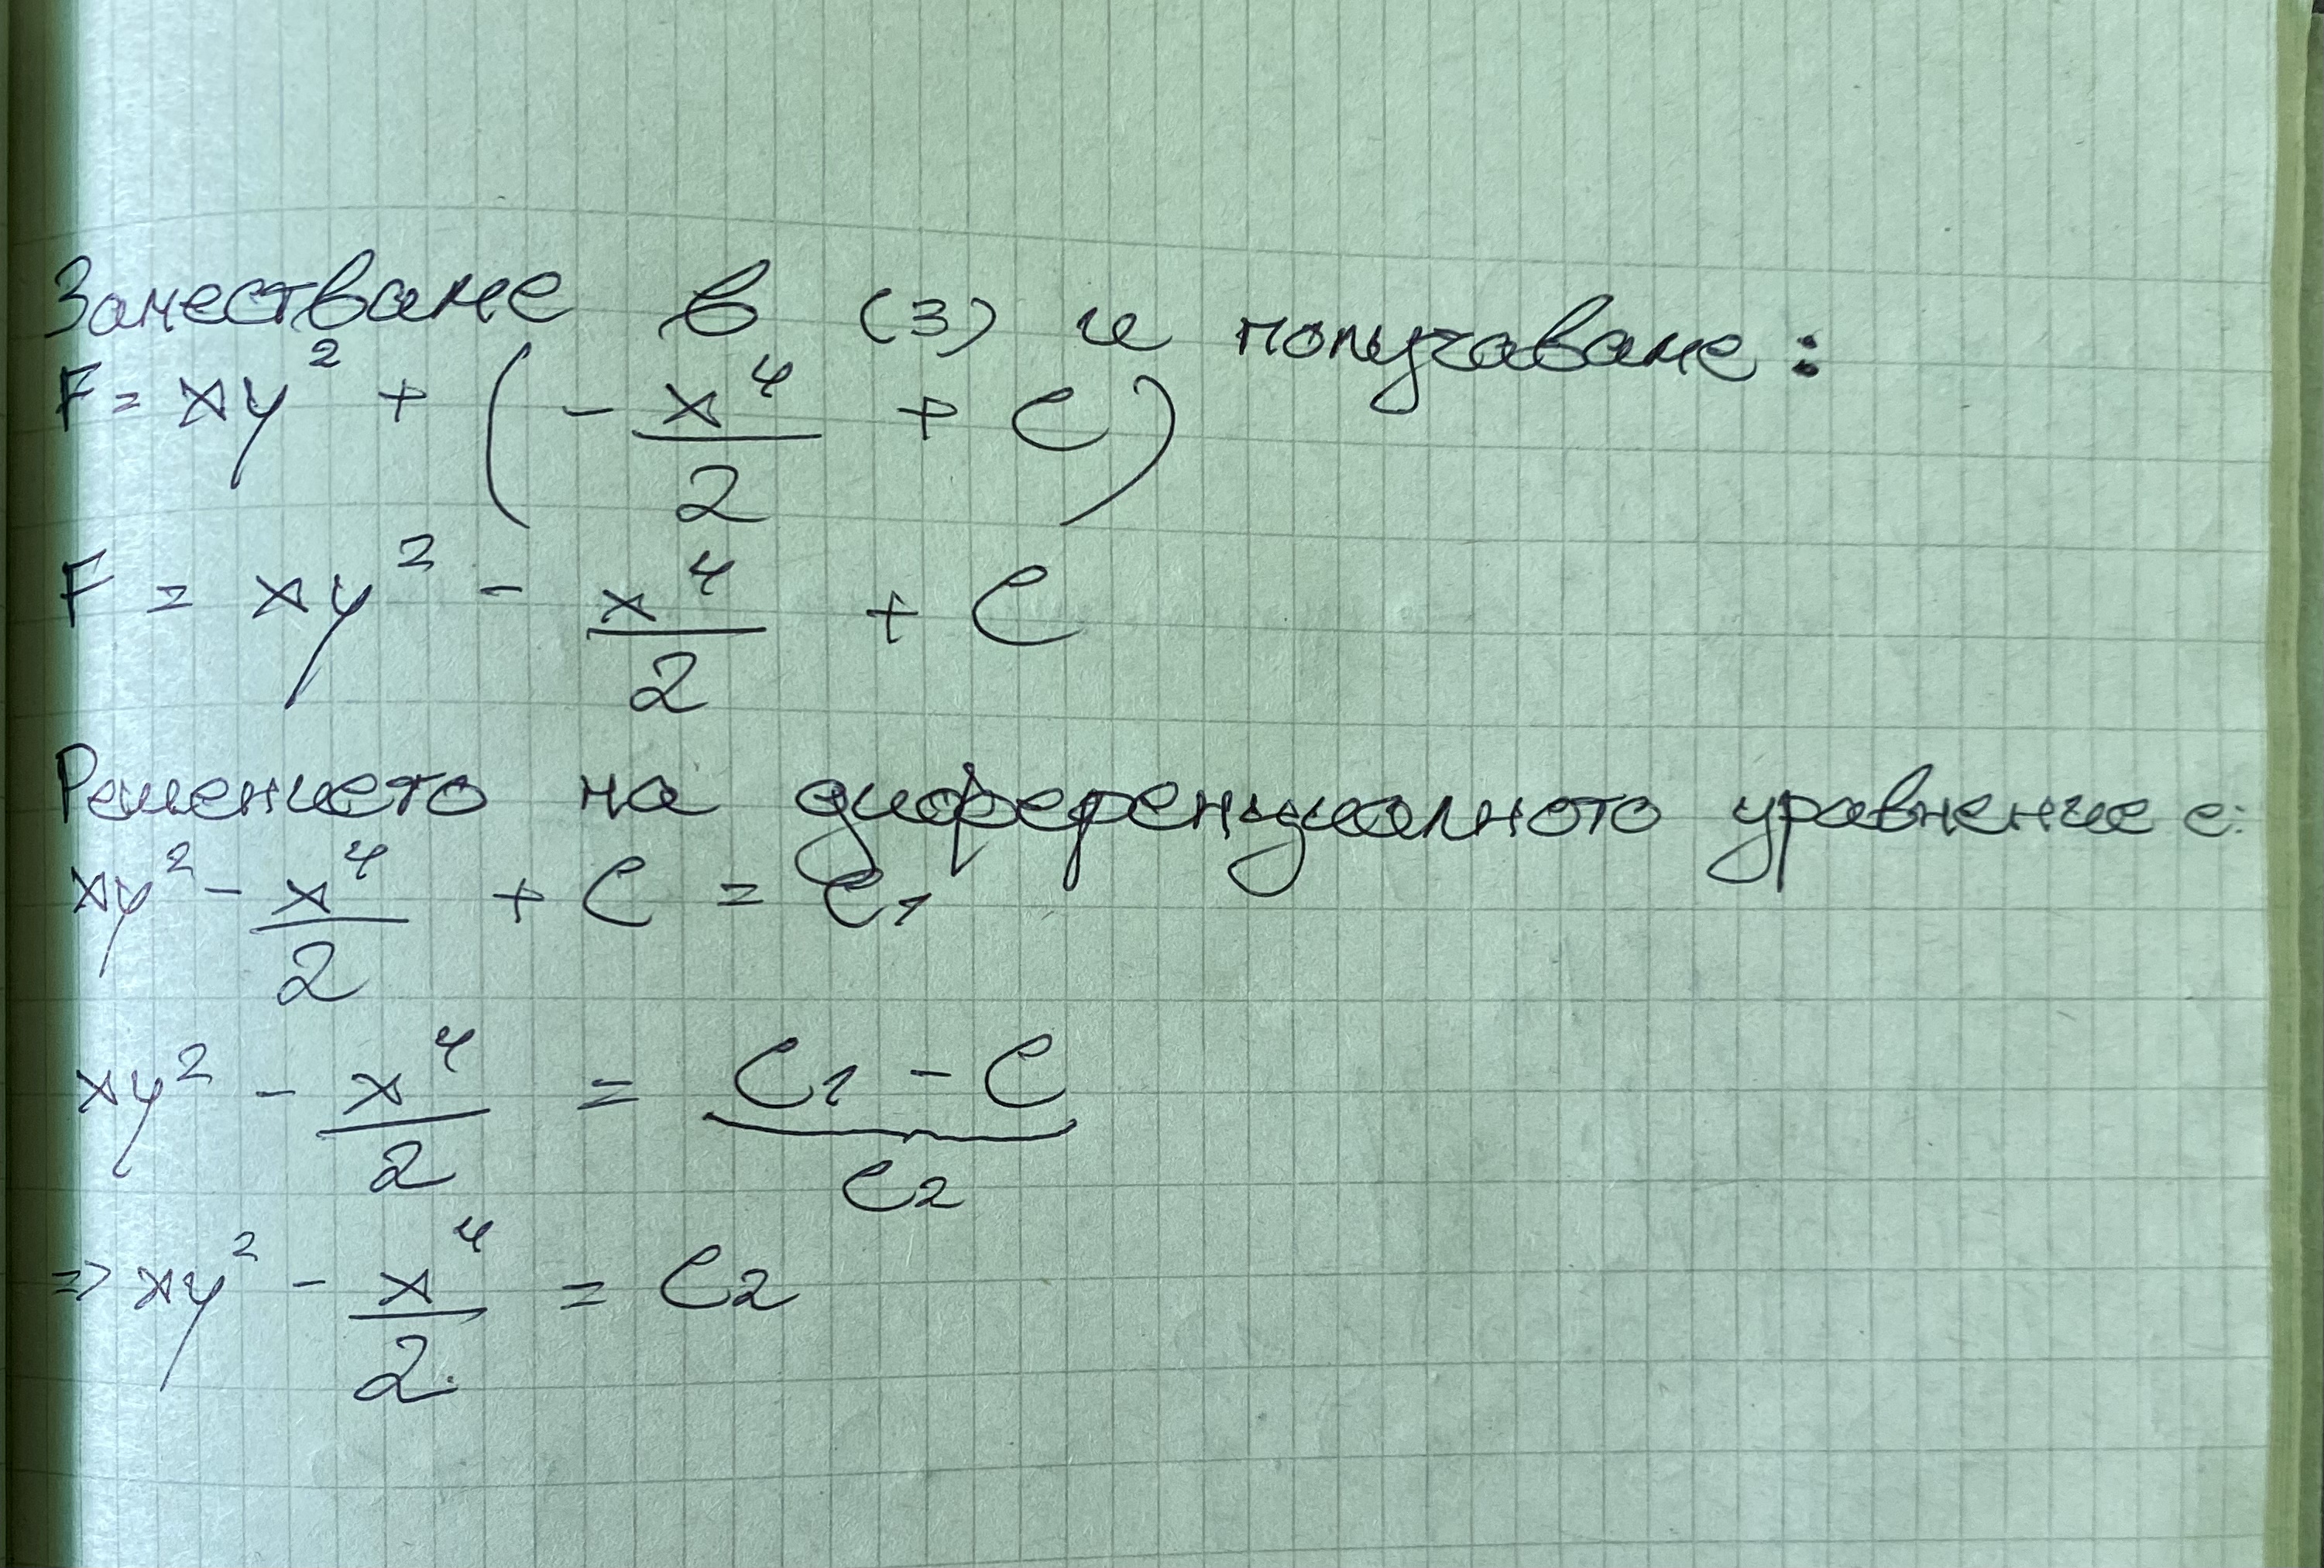 Заместваме в (3) и получаваме:
F = xy² + (- x⁴/2 + C)
F = xy² - x⁴/2 + C
Решението на диференциалното уравнение е:
xy² - x⁴/2 + C = C₁
xy² - x⁴/2 = C₁ - C
C₂
=> xy² - x⁴/2 = C₂